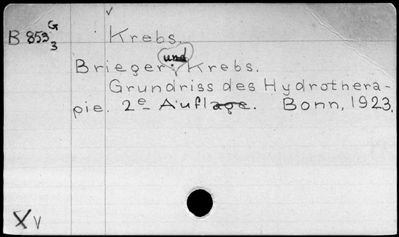 B 853 G 3 Krebs.
Brieger und Krebs.
Grundriss des Hydrothera-
pie. 2e Auflage. Bonn, 1923.
X v